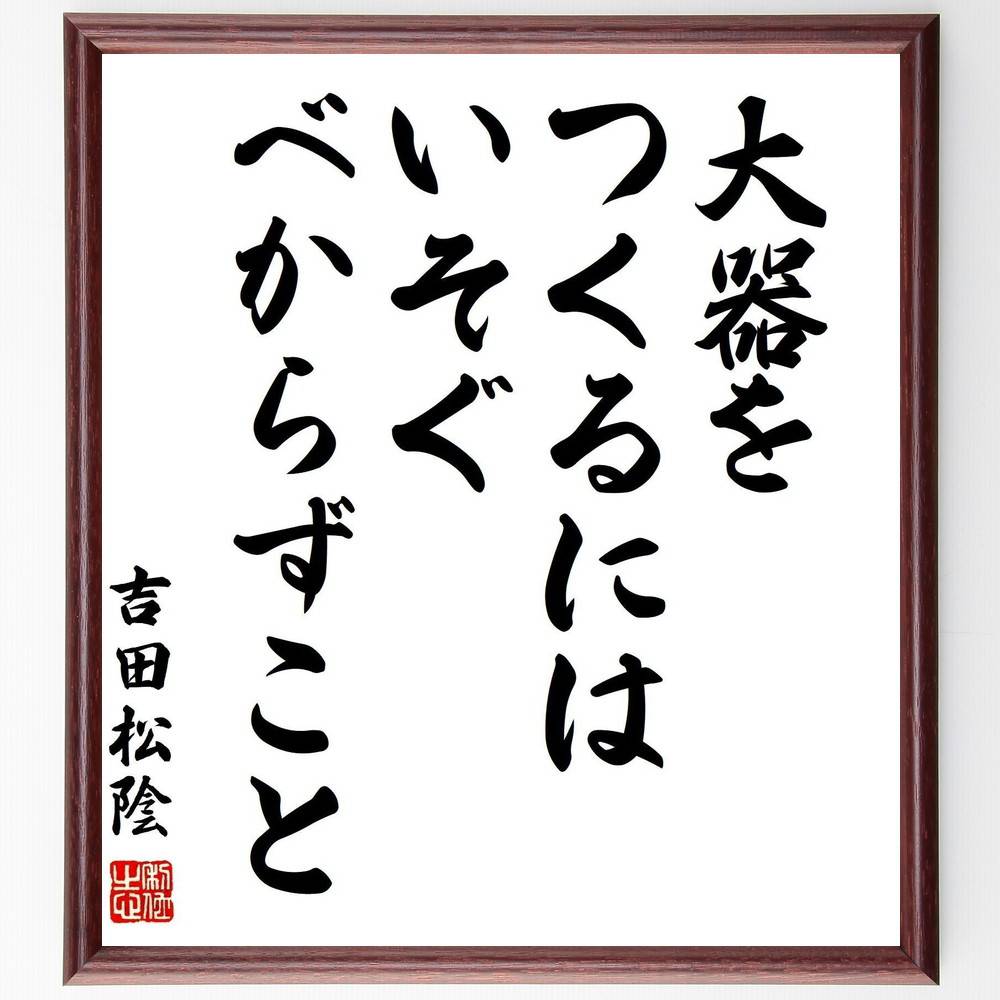 大器を
つくるには
いそぐ
べからずこと
吉田松陰